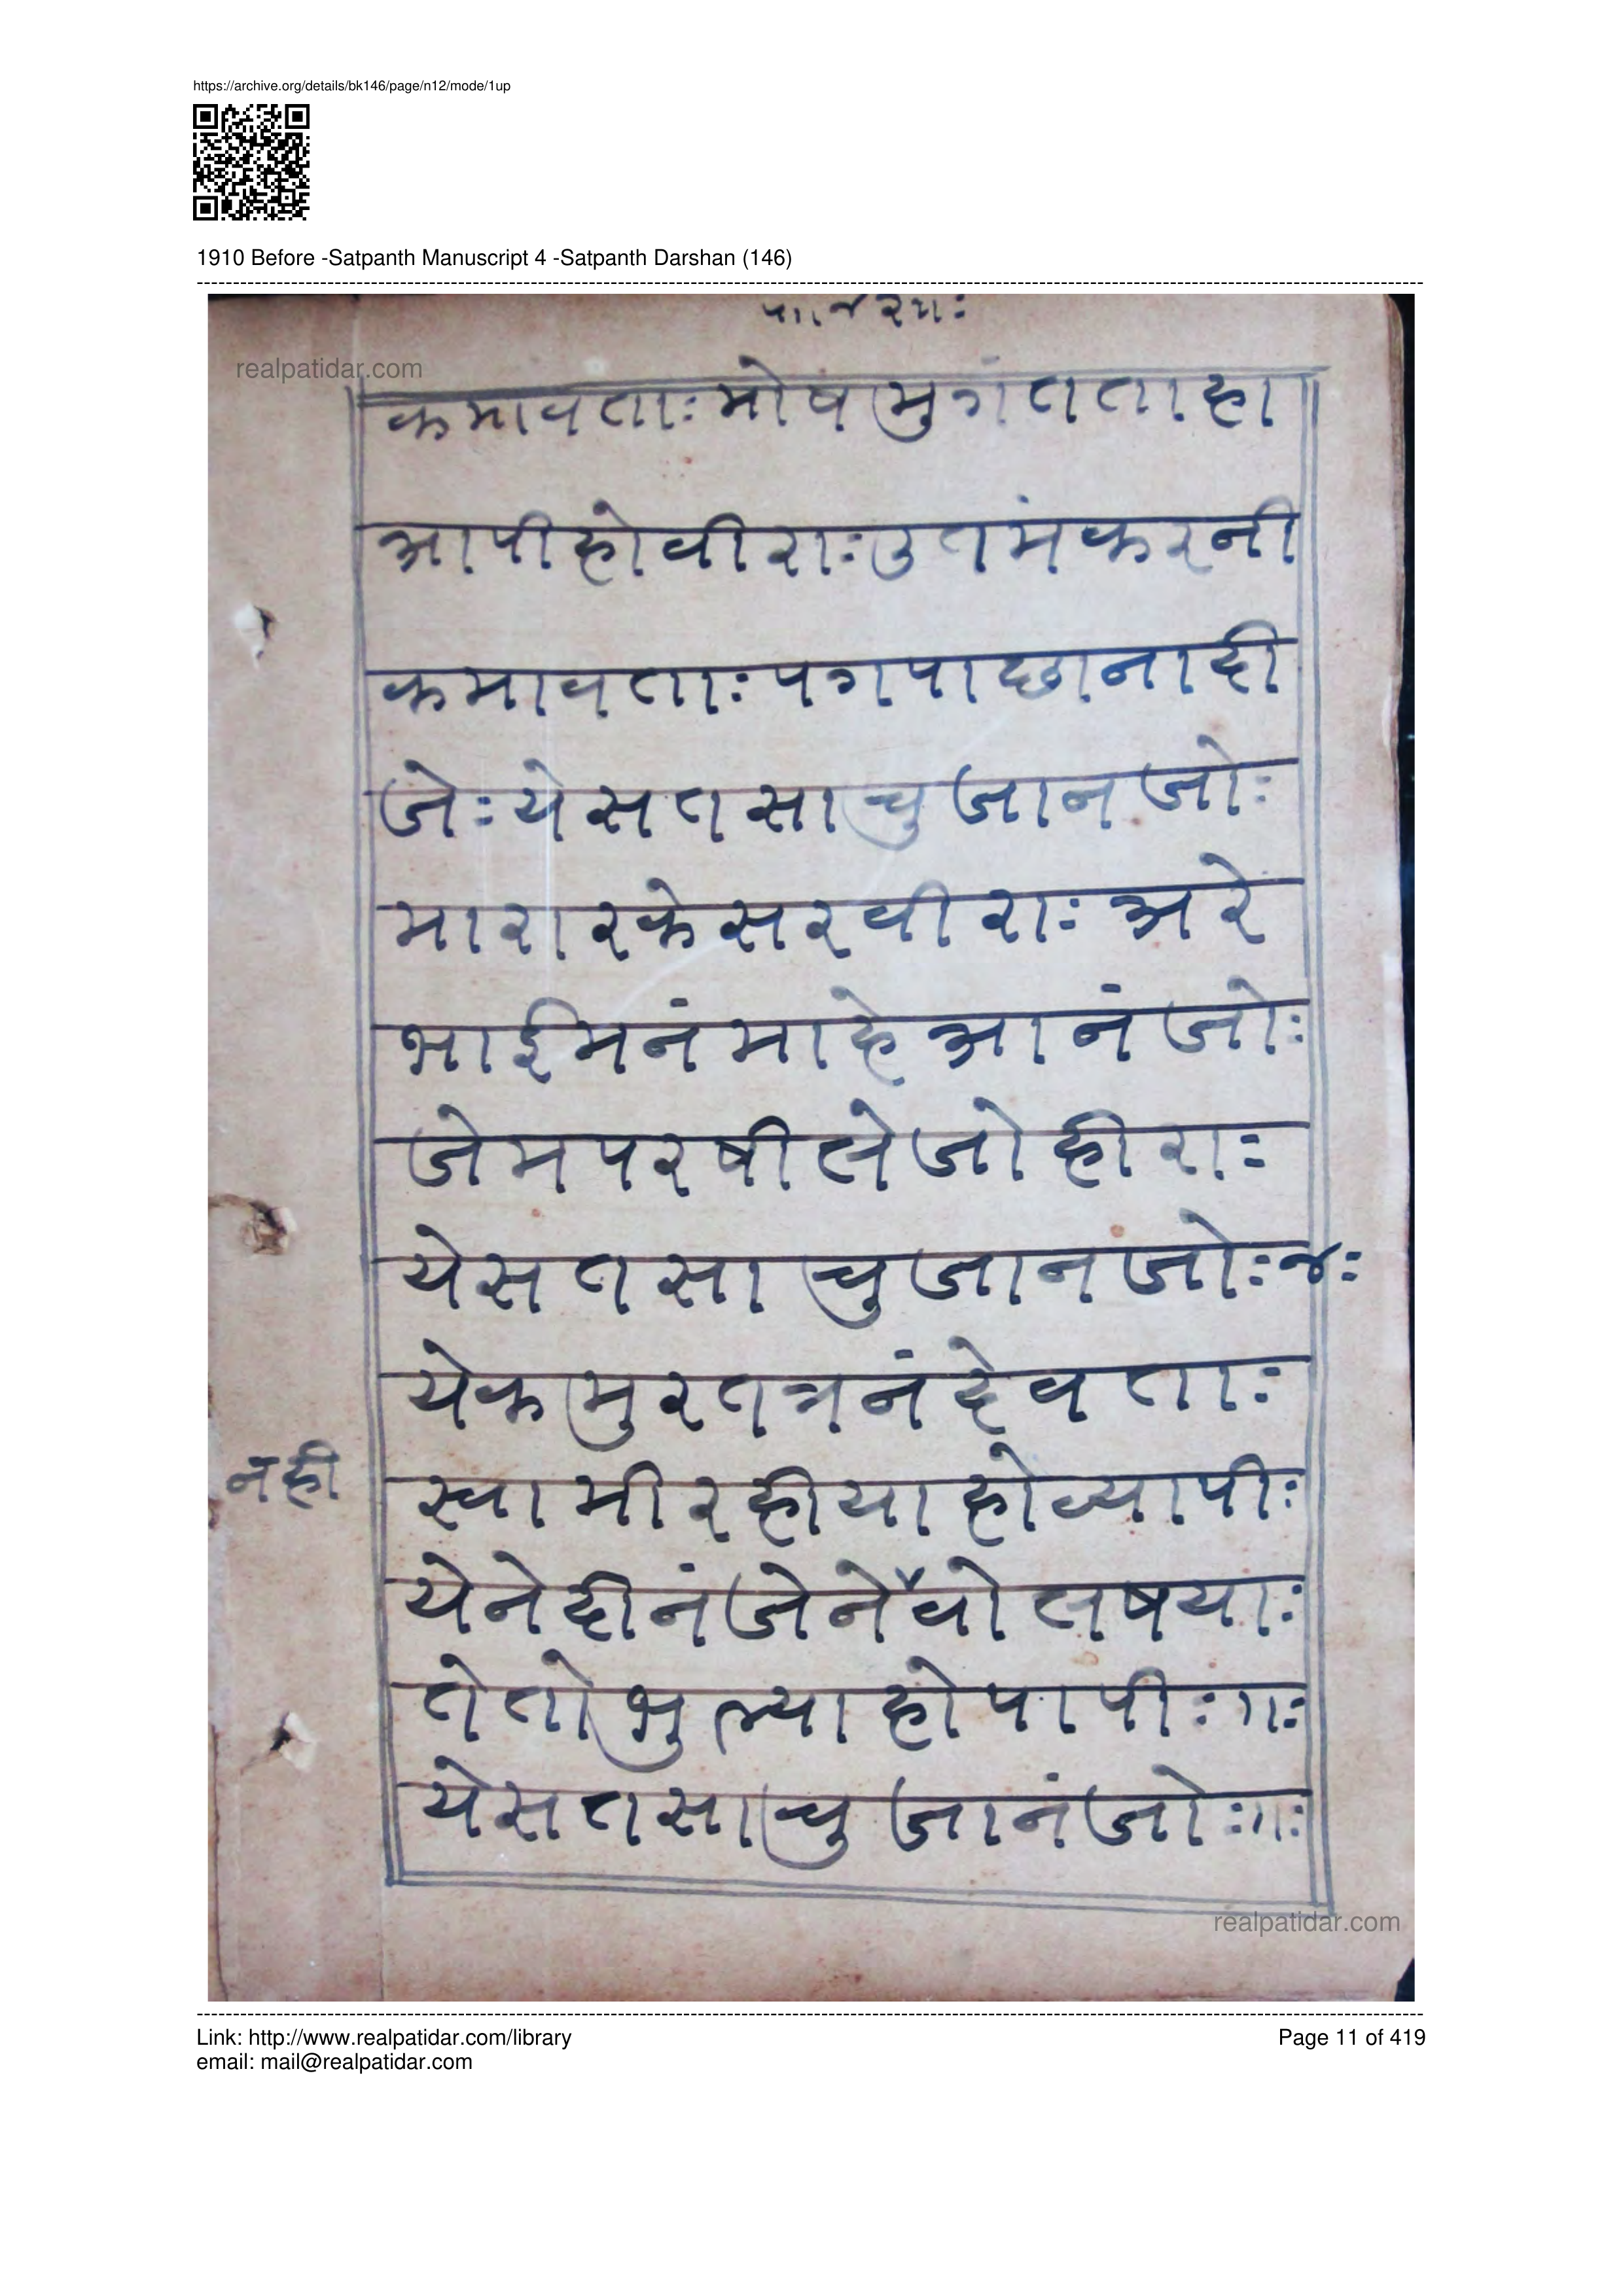 https://archive.org/details/bk146/page/n12/mode/1up
1910 Before -Satpanth Manuscript 4 -Satpanth Darshan (146)
realpatidar.com
कमावताः मोष मुगंत ताहा
आपी हो वीराः उतमं करनी
कमावताः पग पाछा नादी
जेः ये सत साचु जानजोः
मारा रकेसर वीराः अरे
भाई मनं माहे आनंजोः
जेम परषी लेजो हीराः
ये सत साचु जानजोः ४ः
येक मुरत त्रनं देवताः
नही
स्वामी रहीया हो व्यापीः
येने दीनं जेने वो लषयाः
ते तो भुल्या हो पापीः गः
ये सत साचु जानंजोः गः
realpatidar.com
Link: http://www.realpatidar.com/library
Page 11 of 419
email: mail@realpatidar.com